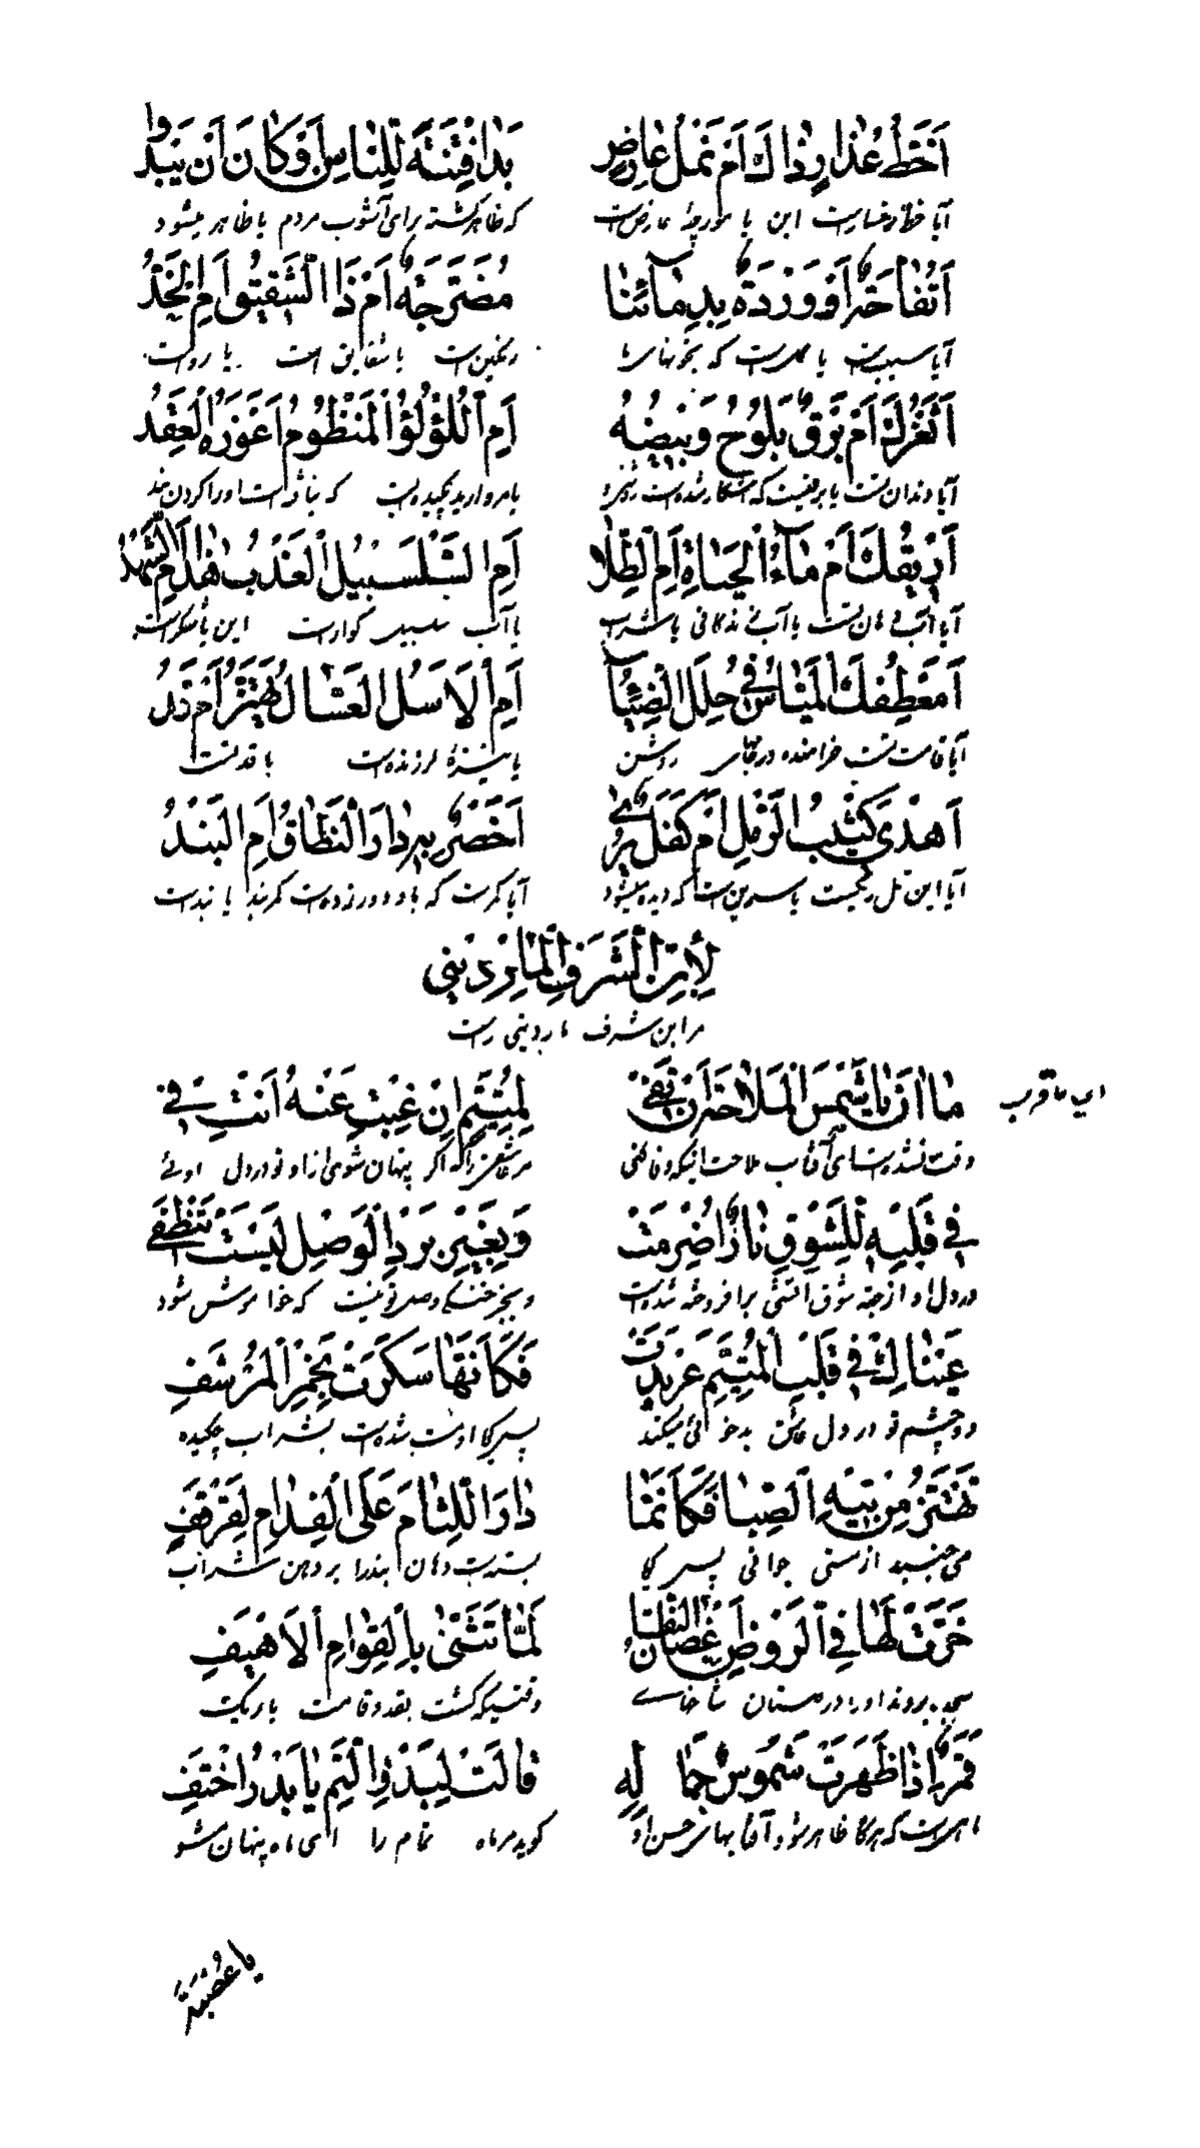 أَخَطُّ عِذَارٍ ذَاكَ أَمْ نَمْلُ عَارِضٍ بَدَا فِتْنَةً لِلنَّاسِ أَوْ كَانَ أَنْ يَبْدُوا
آیا خط رخسارست این یا مورچهٔ عارضست که ظاهر گشته برای آشوب مردم یا ظاهر میشود
أَتُفَّاحَةٌ أَوْ وَرْدَةٌ بِدِمَائِنَا مُضَرَّجَةٌ أَمْ ذَا الشَّقِيقُ أَمِ الْخَدُّ
آیا سیبست یا گلست که بخونهای ما رنگین است یا شقایق است یا روست
أَثَغْرُكَ أَمْ بَرْقٌ يَلُوحُ وَمِيضُهُ أَمِ اللُّؤْلُؤُ الْمَنْظُومُ أَعْوَزَهُ الْعِقْدُ
آیا دندان تست یا برقیست که آشکار شده‌ست
أَرِيقُكَ أَمْ مَاءُ الْحَيَاةِ أَمِ الطِّلَا أَمِ السَّلْسَبِيلُ الْعَذْبُ هٰذَا أَمِ الشَّهْدُ
آیا آب دهان تست یا آب زندگانی یا شراب یا آب سلسبیل گواراست این یا
أَمَعْطِفُكَ الْمَيَّاسُ فِي حُلَلِ الضِّيَا أَمِ الْأَسَلُ الْعَسَّالُ يَهْتَزُّ أَمْ قَدُّ
آیا قامت تست خرامنده در روشن یا نیزهٔ لرزنده‌ست یا قد تست
أَهٰذَى كَثِيبُ الرَّمْلِ أَمْ كَفَلٌ يُرَى أَخَصْرٌ بِهِ دَارَ النِّطَاقُ أَمِ الْبَنْدُ
آیا این تل ریگست یا سرین است که دیده میشود آیا کمرست که بدو دور زده‌ست کمربند یا بندست
لِابْنِ الشَّرَفِ الْمَارِدِينِي
مر ابن شرف ماردینی راست
مَا آنَ يَا شَمْسَ الْمَلَاحَةِ أَنْ تَفِي لِمُتَيَّمٍ إِنْ غِبْتِ عَنْهُ أَنْتِ فِي
ای ما قرب
وقت نشده‌ست ای آفتاب ملاحت اینکه وفا کنی مر عاشقی را که اگر پنهان شوی از او تو در دل اوئی
فِي قَلْبِهِ لِلشَّوْقِ نَارٌ أُضْرِمَتْ وَبِغَيْرِ بَرْدِ الْوَصْلِ لَيْسَتْ تَنْطَفِي
در دل او از جهة شوق آتشی برافروخته شده‌ست و بغیر خنکی وصل نیست که خاموش شود
عَيْنَاكِ فِي قَلْبِ الْمُتَيَّمِ عَرْبَدَتْ فَكَأَنَّهَا سَكَرَتْ بِخَمْرِ الْمَرْشَفِ
دو چشم تو در دل عاشق بدخوئی میکند پس گویا او مست شده‌ست بشراب چکیده
تَهْتَزُّ مِنْ تِيهِ الصِّبَا فَكَأَنَّمَا دَارَ اللِّثَامُ عَلَى الْفِدَامِ لِقَرْقَفِ
می‌جنبد از مستی جوانی پس گویا بسته‌ست دهان بند را بر دهن شراب
خَرَّتْ لَهَا فِي الرَّوْضِ أَغْصَانُ النَّقَا لَمَّا تَثَنَّى بِالْقَوَامِ الْأَهْيَفِ
سجده بردند او را در بستان شاخهای وقتیکه گشت بقد و قامت باریک
قَمَرٌ إِذَا ظَهَرَتْ شُمُوسُ جَمَالِهِ قَالَتْ لِبَدْرِ التَّمِّ يَا بَدْرُ اخْتَفِ
ماهیست که هرگاه ظاهر شود آفتابهای حسن او گوید مر ماه تمام را ای ماه پنهان شو
يَا عُصْبَةً